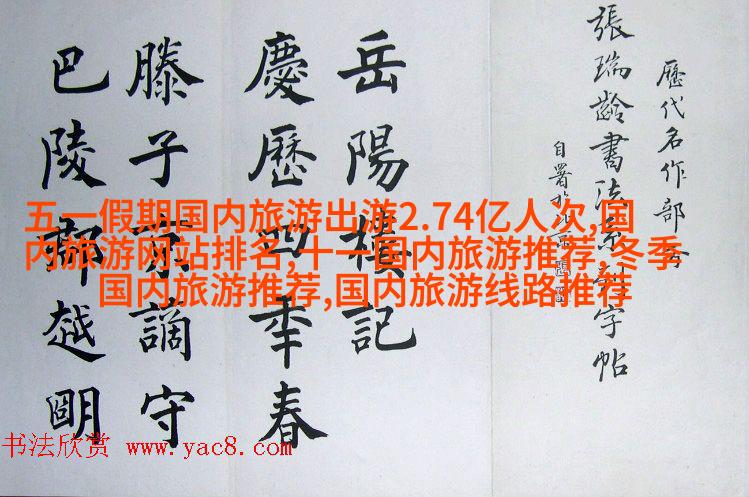 歷代名作部分
張瑞齡書法系列字帖
自署
岳陽樓記
慶歷四年春
滕子京謫守
巴陵郡越明
五一假期国内旅游出游2.74亿人次,国
内旅游网站排名,十一国内旅游推荐·冬季
国内旅游推荐,国内旅游线路推荐
书法欣赏 www.yac8.com